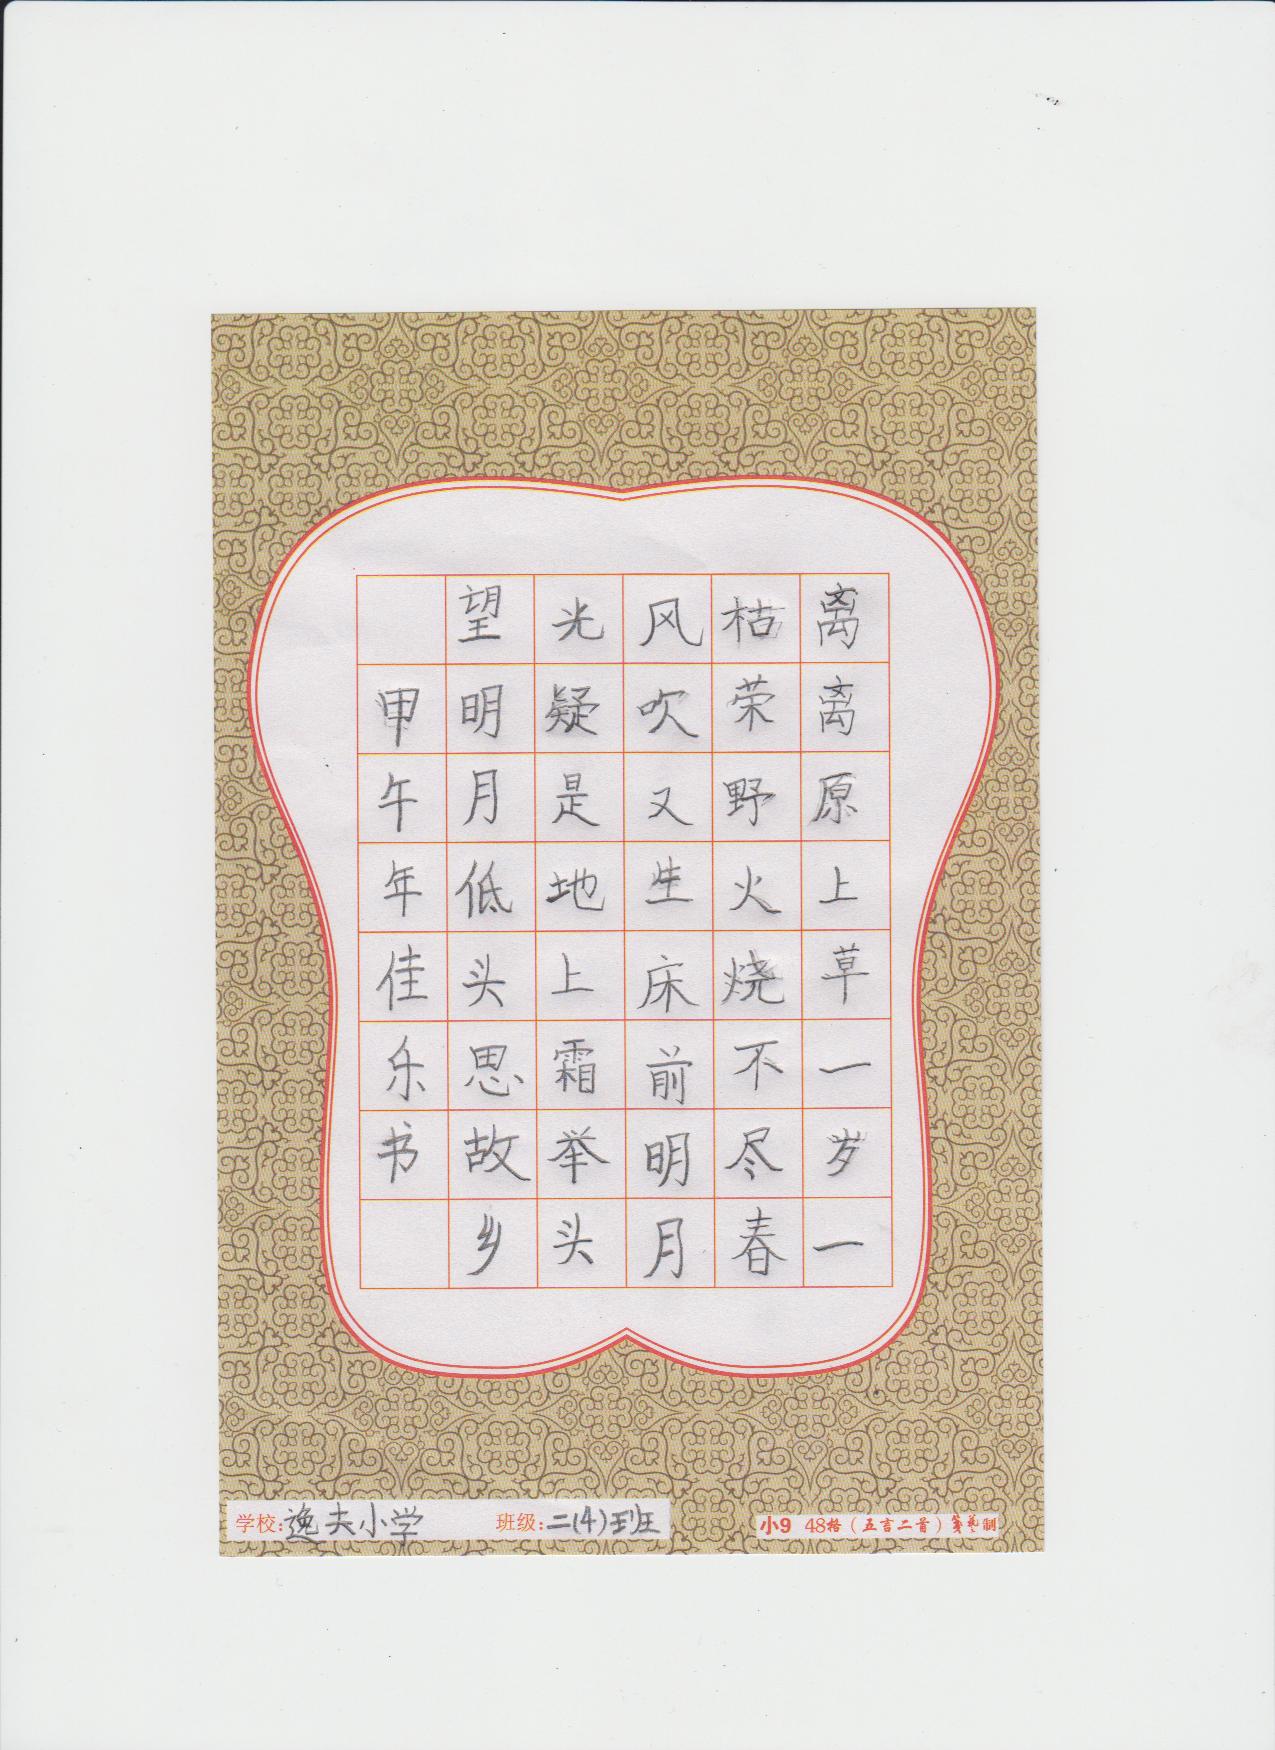 离离原上草一岁一
枯荣野火烧不尽春
风吹又生床前明月
光疑是地上霜举头
望明月低头思故乡
甲午年佳乐书
学校:逸夫小学
班级:二(4)班
小9 48格(五言二首)笺艺制